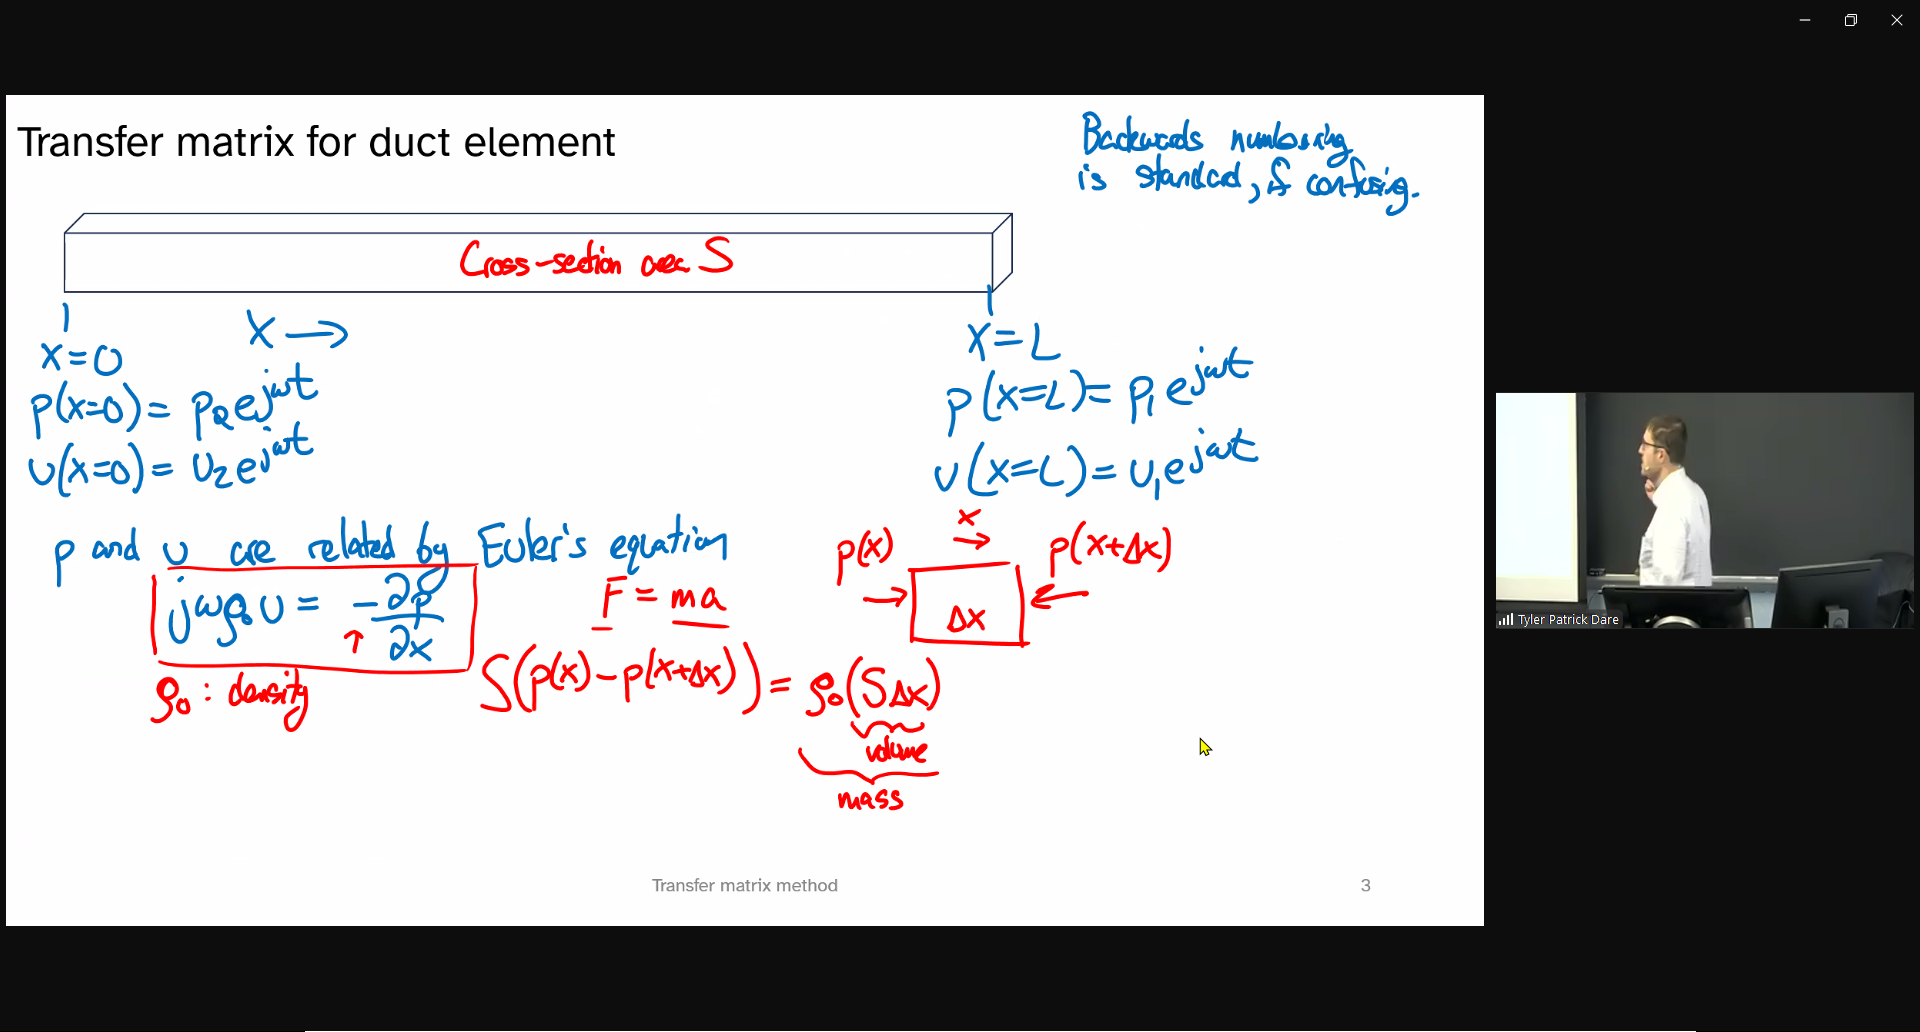 Transfer matrix for duct element
Backwards numbering
is standard, if confusing.
Cross-section area S
x →
x=0
p(x=0) = p₂e^jωt
u(x=0) = u₂e^jωt
x=L
p(x=L) = p₁e^jωt
u(x=L) = u₁e^jωt
p and u are related by Euler's equation
jωρ₀u = -∂p/∂x
↑
ρ₀ : density
F = ma
x
→
p(x)
→
p(x+Δx)
←
Δx
S(p(x) - p(x+Δx)) = ρ₀(SΔx)
volume
mass
Transfer matrix method
3
Tyler Patrick Dare